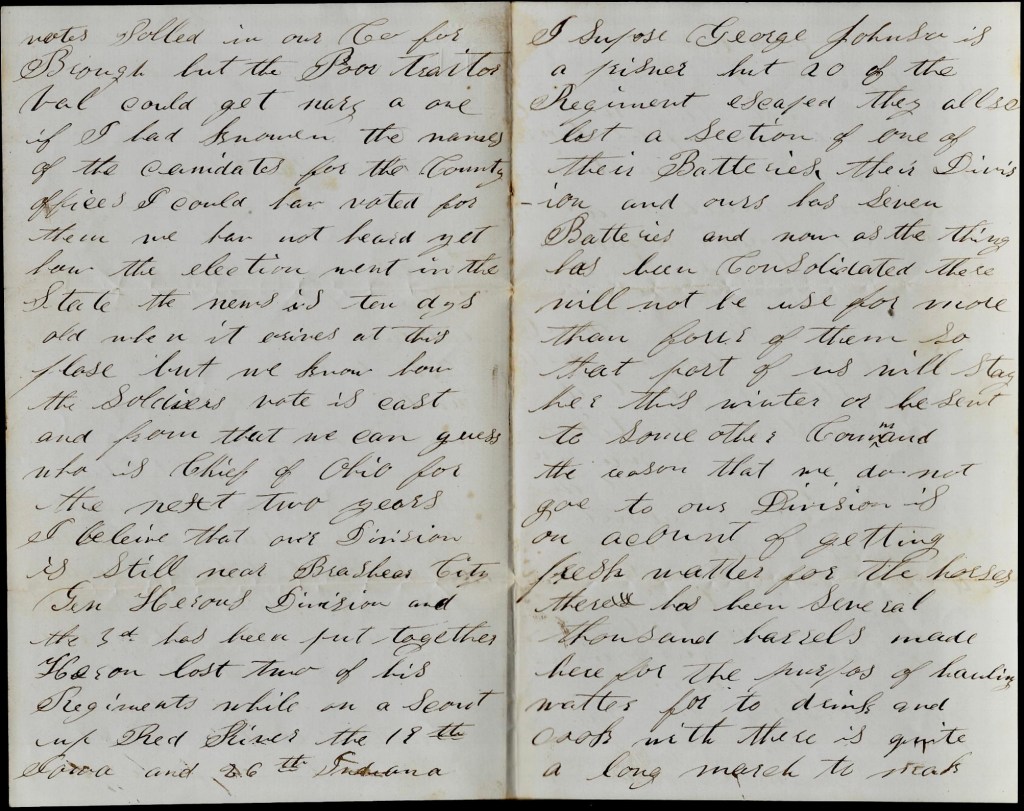 votes Polled in our Co for
Brough but the Poor traitor
Val could get nary a one
if I had knowen the names
of the canidates for the County
offices I could hav voted for
them we hav not heard yet
how the election went in the
State the news is ten dys
old when it arives at this
plase but we know how
the Soldiers vote is cast
and from that we can guess
who is Chief of Ohio for
the next two years
I beleive that our Division
is still near Brashear City
Gen Herons Division and
the 3d has been put together
Heron lost two of his
Regiments while on a Scout
up Red River the 19th
Iowa and 26th Indiana
I supose George Johnson is
a prisner but 20 of the
Regiment escaped they allso
lost a Section of one of
their Batteries their Divis
-ion and ours has seven
Batteries and now as the thing
has been Consolidated there
will not be use for more
than four of them so
that part of us will stay
her this winter or be sent
to some other Command
the reason that we do not
goe to our Division is
on acount of getting
fresh watter for the horses
there has been several
thousand barrels made
here for the purpos of hauling
watter for to drink and
cook with there is quite
a long march to make